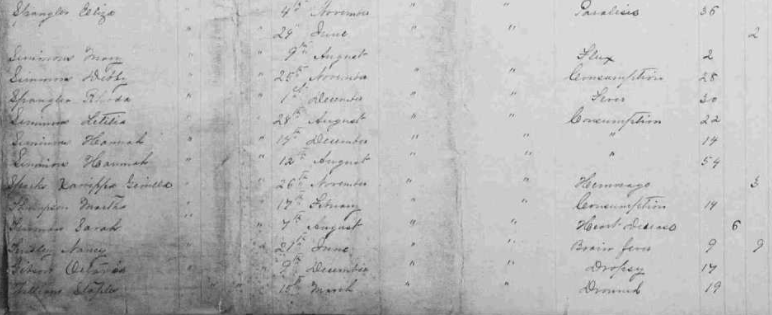 Spangler Eliza " " 4th November " " Paralisis 36
" " 24 June " " 2
Simmons Mary " " 9th August " " Flux 2
Simmons " " 25th November " " Consumption 28
Spangler Rhoda " " 1st December " " Fever 30
Simmons Letitia " " 24th August " " Consumption 22
Simmons Hannah " " December " " " 14
Simmons Hannah " " 12th August " " " 54
Sparks " 26th November " " Hemorage 3
Thompson Martha " " 17th February " " Consumption 14
Sarah " " 7th August " " Heart Disease 6
Nancy " 27th June " " Brain fever 9 9
" 9th December " " Dropsy 17
William " 15th March " " Drowned 19